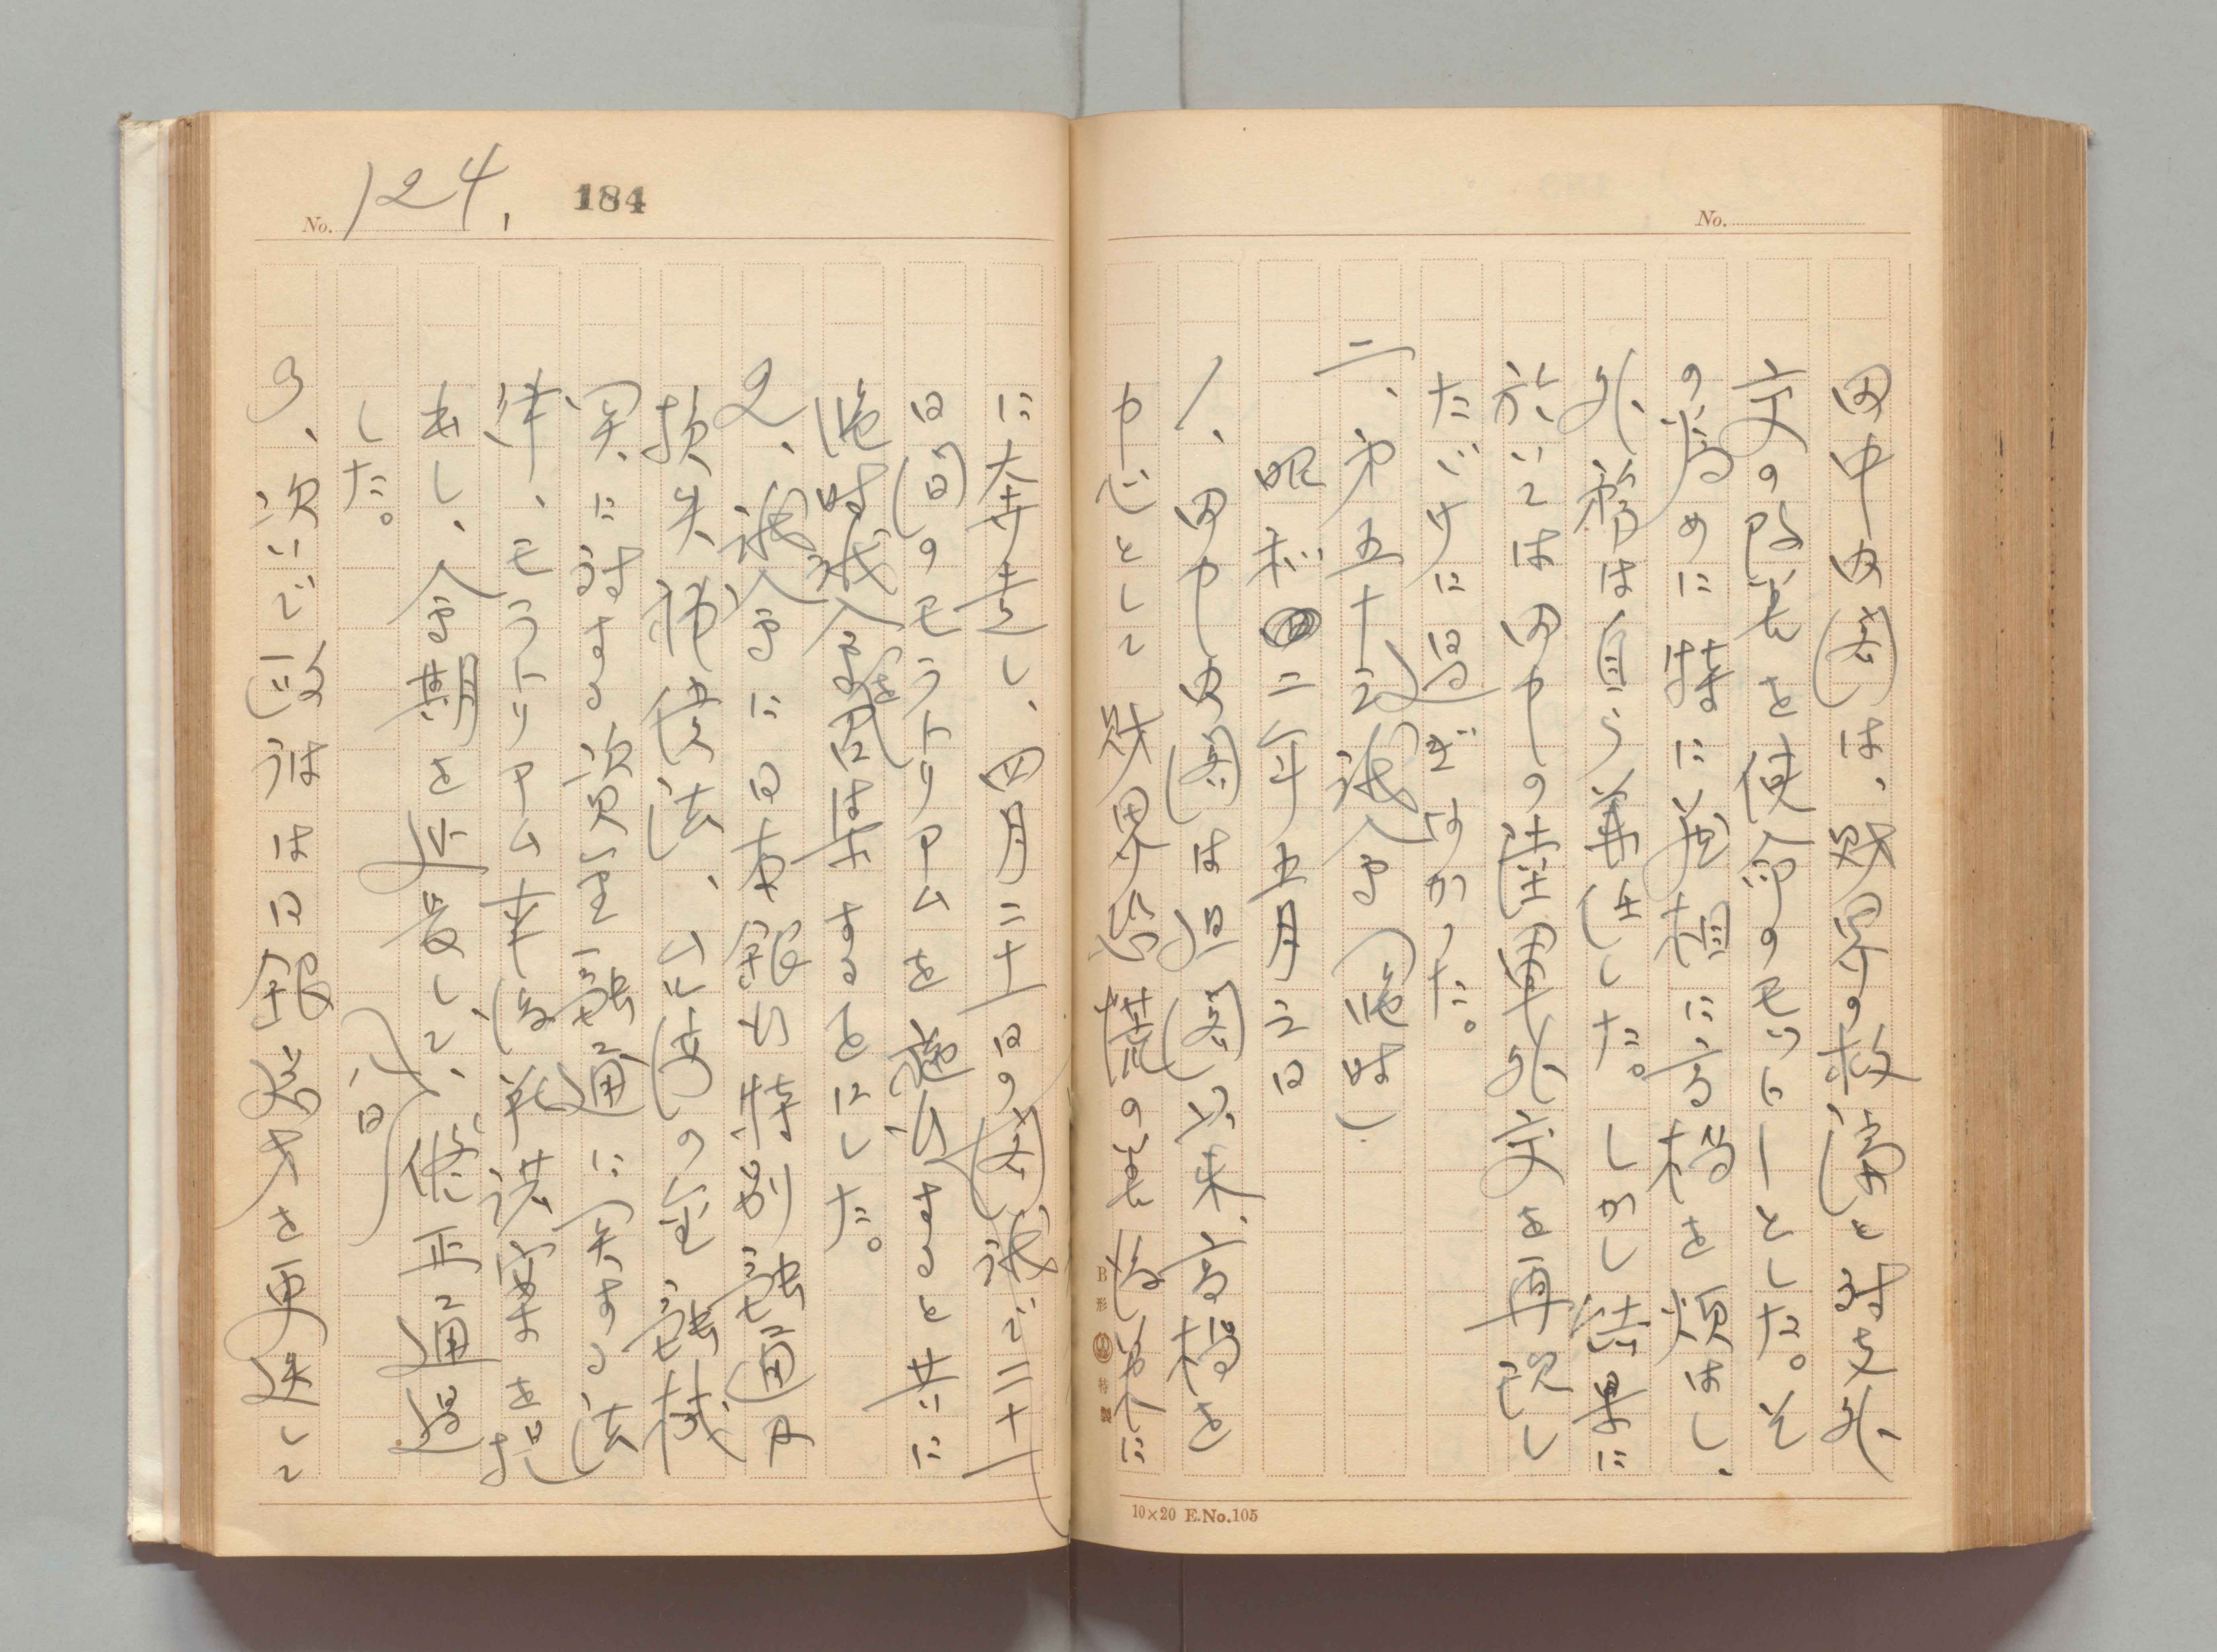 No.
田中内閣は、財界の救済と対支外
交の改善を使命のモットーとした。そ
の為めに特に蔵相に高橋を煩はし、
外務は自ら兼任した。しかし結果に
於いては田中の陸軍外交を再現し
たゞけに過ぎなかった。
二、第五十三議会(臨時)
昭和二年五月三日
1、田中内閣は組閣以来、高橋を
中心として財界恐慌の善後処置に
10×20 E.No.105
B形 特製
184
No. 124.
に奔走し、四月二十一日の閣議で二十一
日間のモラトリアムを施行すると共に
臨時議会を召集することにした。
2、議会に日本銀行特別融通及
損失補償法、台湾の金融機
関に対する資金融通に関する法
律、モラトリアム事後承諾案を提
出し、会期を延長して、修正通過
した。
(一日)
3、次いで政府は日銀総裁を更迭して